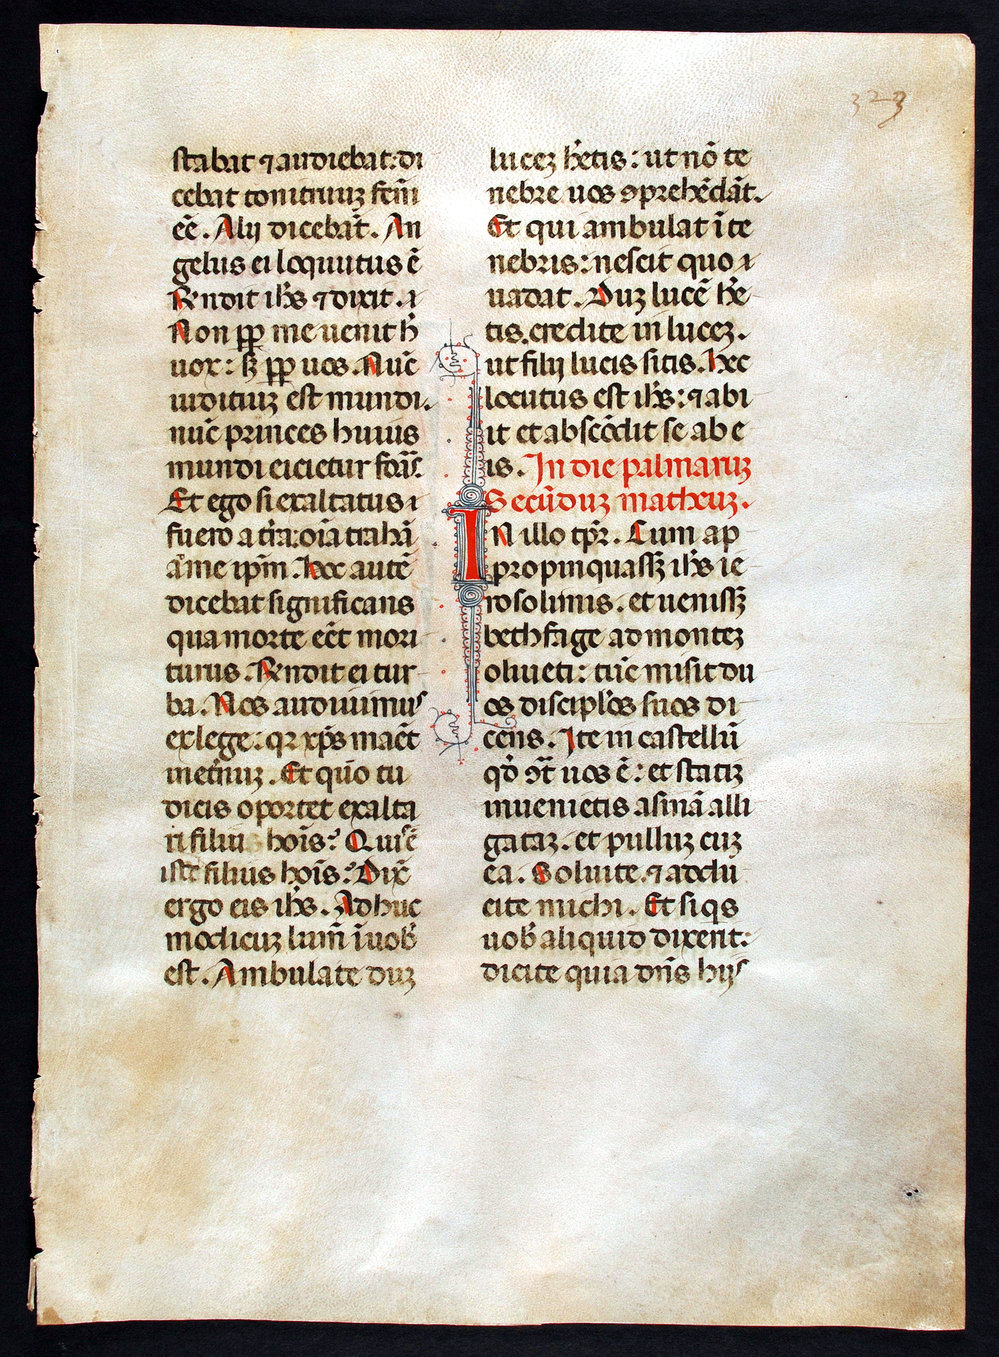 323
stabat ⁊ audiebat: di
cebat tonitruuꝫ fcm̄
eē. Alij dicebāt. An
gelus ei loquutus ē
Rn̄dit ih̄s ⁊ dixit. ⁊
Non ꝓꝑ me uenit h̄
uox: sꝫ ꝓꝑ uos. Nūc
iuditiuꝫ est mundi.
nūc princes huius
mundi eicietur forās.
Et ego si exaltatus ⁊
fuero a tr̄a: oīa trahā
ad me ip̄m. Hoc autē
dicebat significans
qua morte eēt mori
turus. Rn̄dit ei tur
ba. Nos audiuimus
ex lege: qꝛ xp̄s maēt
in et̄nuꝫ. Et quō tu
dicis oportet exalta
ri filiū hoīs? Quis ē
iste filius hoīs? Dix̄
ergo eis ih̄s. Adhuc
modicuꝫ lum̄ ī uob̄
est. Ambulate duꝫ
luceꝫ h̄etis: ut nō te
nebre uos ꝯprehēdāt.
Et qui ambulat ī te
nebris: nescit quo ⁊
uadat. Duꝫ lucē h̄e
tis. credite in luceꝫ.
ut filij lucis sitis. Hec
locutus est ih̄s: ⁊ abi
it et abscōdit se ab e
is. In die palmaruꝫ
Secūduꝫ matheuꝫ.
IN illo tp̄r. Cum ap
propinquassꝫ ih̄s ie
rosolimis. et uenissꝫ
bethfage ad monteꝫ
oliueti: tūc misit du
os discipl̄os suos di
cens. Ite in castellū
qd̄ ꝯt̄ uos ē: et statiꝫ
inuenietis asinā alli
gataꝫ. et pulluꝫ cuꝫ
ea. Soluite. ⁊ addu
cite michi. Et siqs
uob̄ aliquid dixerit:
dicite quia dn̄s hijs